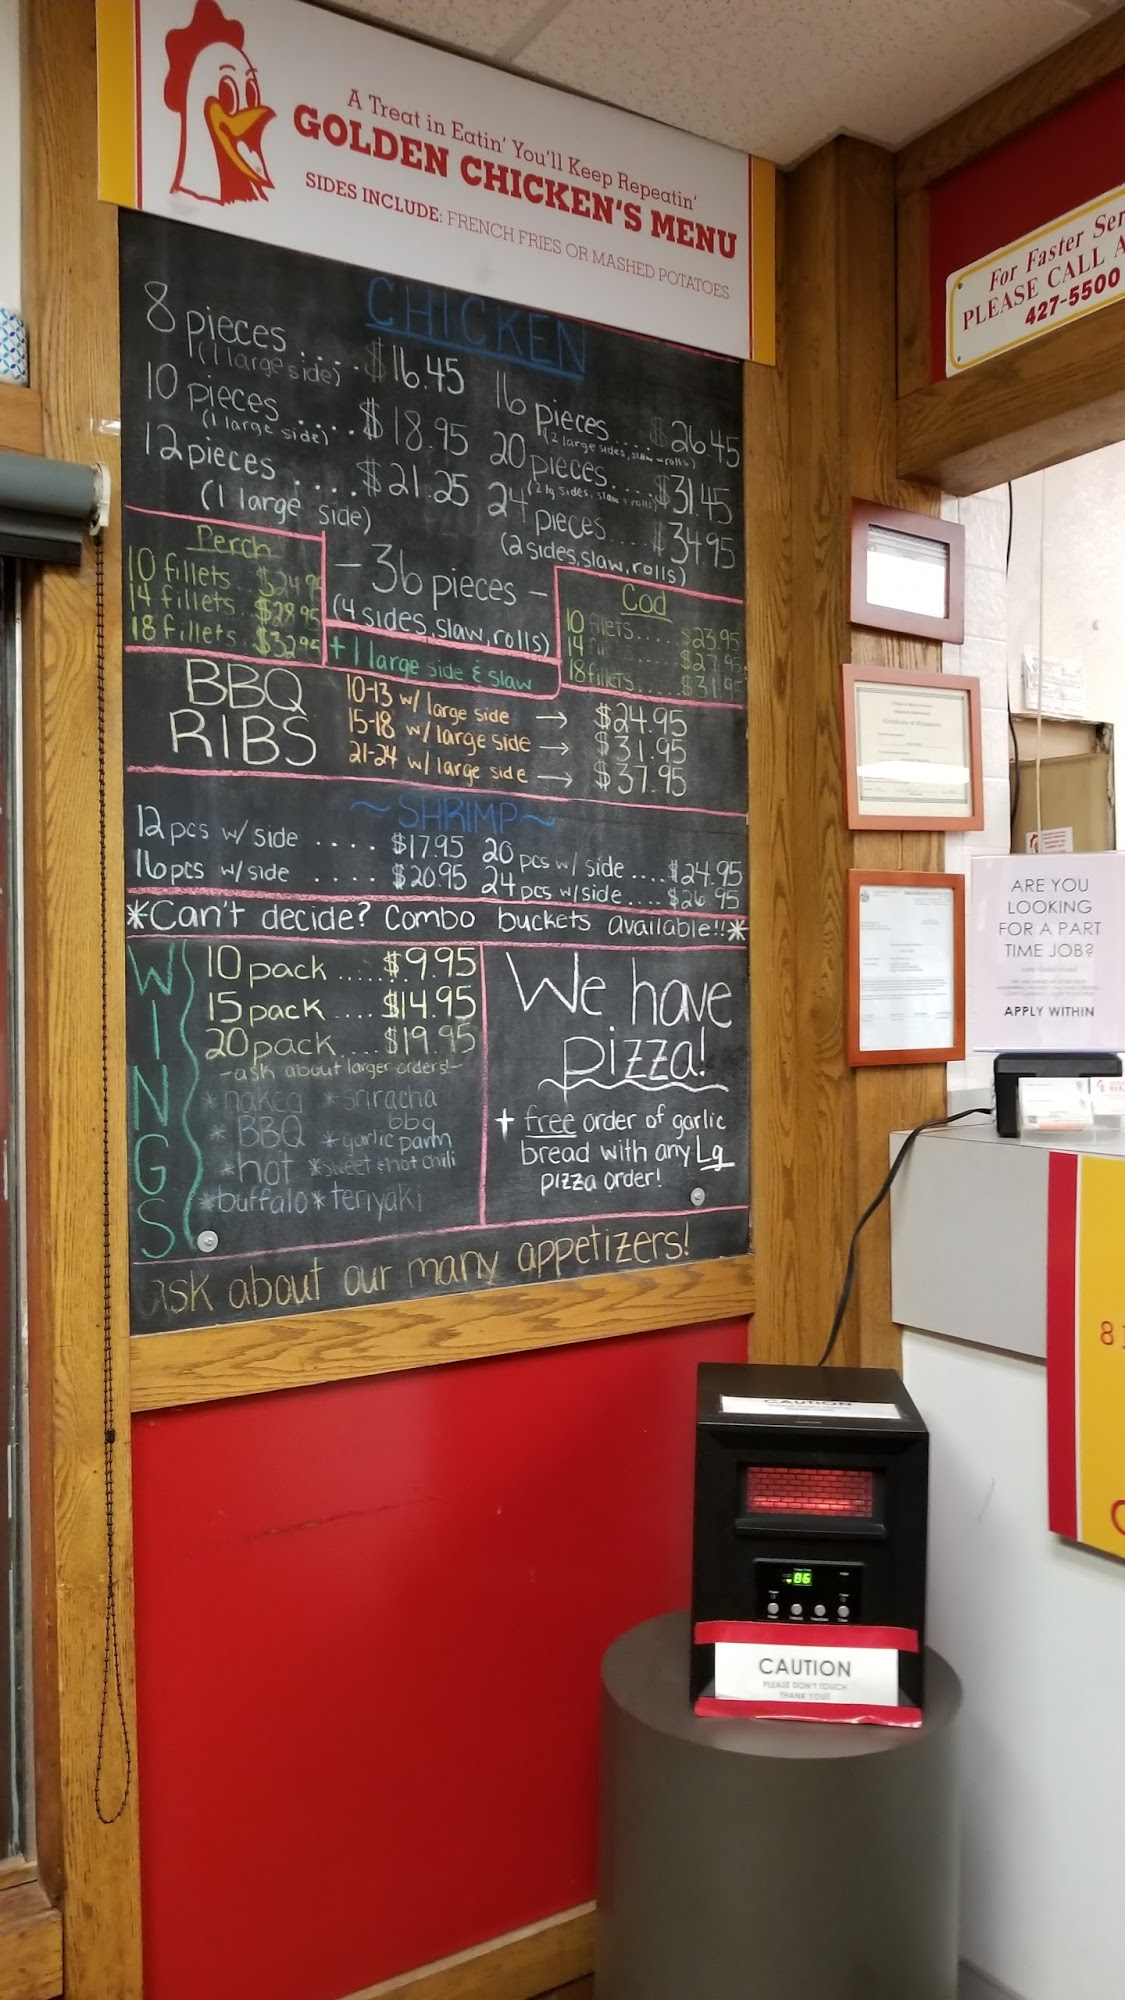 A Treat in Eatin' You'll Keep Repeatin'
GOLDEN CHICKEN'S MENU
SIDES INCLUDE: FRENCH FRIES OR MASHED POTATOES
CHICKEN
8 pieces .... $16.45
(1 large side)
10 pieces .... $18.95
(1 large side)
12 pieces .... $21.25
(1 large side)
16 pieces.... $26.45
(2 large sides, slaw, rolls)
20 pieces.... $31.45
(2 lg sides, slaw, rolls)
24 pieces.... $34.95
(2 sides, slaw, rolls)
- 36 pieces -
(4 sides, slaw, rolls)
+ 1 large side & slaw
Perch
10 fillets.. $24.95
14 fillets.. $28.95
18 fillets.. $32.95
Cod
10 fillets.... $23.95
14 $27.95
18 fillets..... $31.95
BBQ
RIBS
10-13 w/ large side → $24.95
15-18 w/ large side → $31.95
21-24 w/ large side → $37.95
~SHRIMP~
12 pcs w/ side .... $17.95
16 pcs w/side .... $20.95
20 pcs w/ side .... $24.95
24 pcs w/side .... $26.95
*Can't decide? Combo buckets available!!*
WINGS
10 pack .... $9.95
15 pack .... $14.95
20 pack .... $19.95
-ask about larger orders!-
*naked *sriracha bbq
*BBQ *garlic parm
*hot *sweet & hot chili
*buffalo *teriyaki
We have
pizza!
+ free order of garlic
bread with any Lg
pizza order!
ask about our many appetizers!
For Faster Ser
PLEASE CALL A
427-5500
ARE YOU
LOOKING
FOR A PART
TIME JOB?
APPLY WITHIN
CAUTION
86
CAUTION
PLEASE DON'T TOUCH
THANK YOU!!